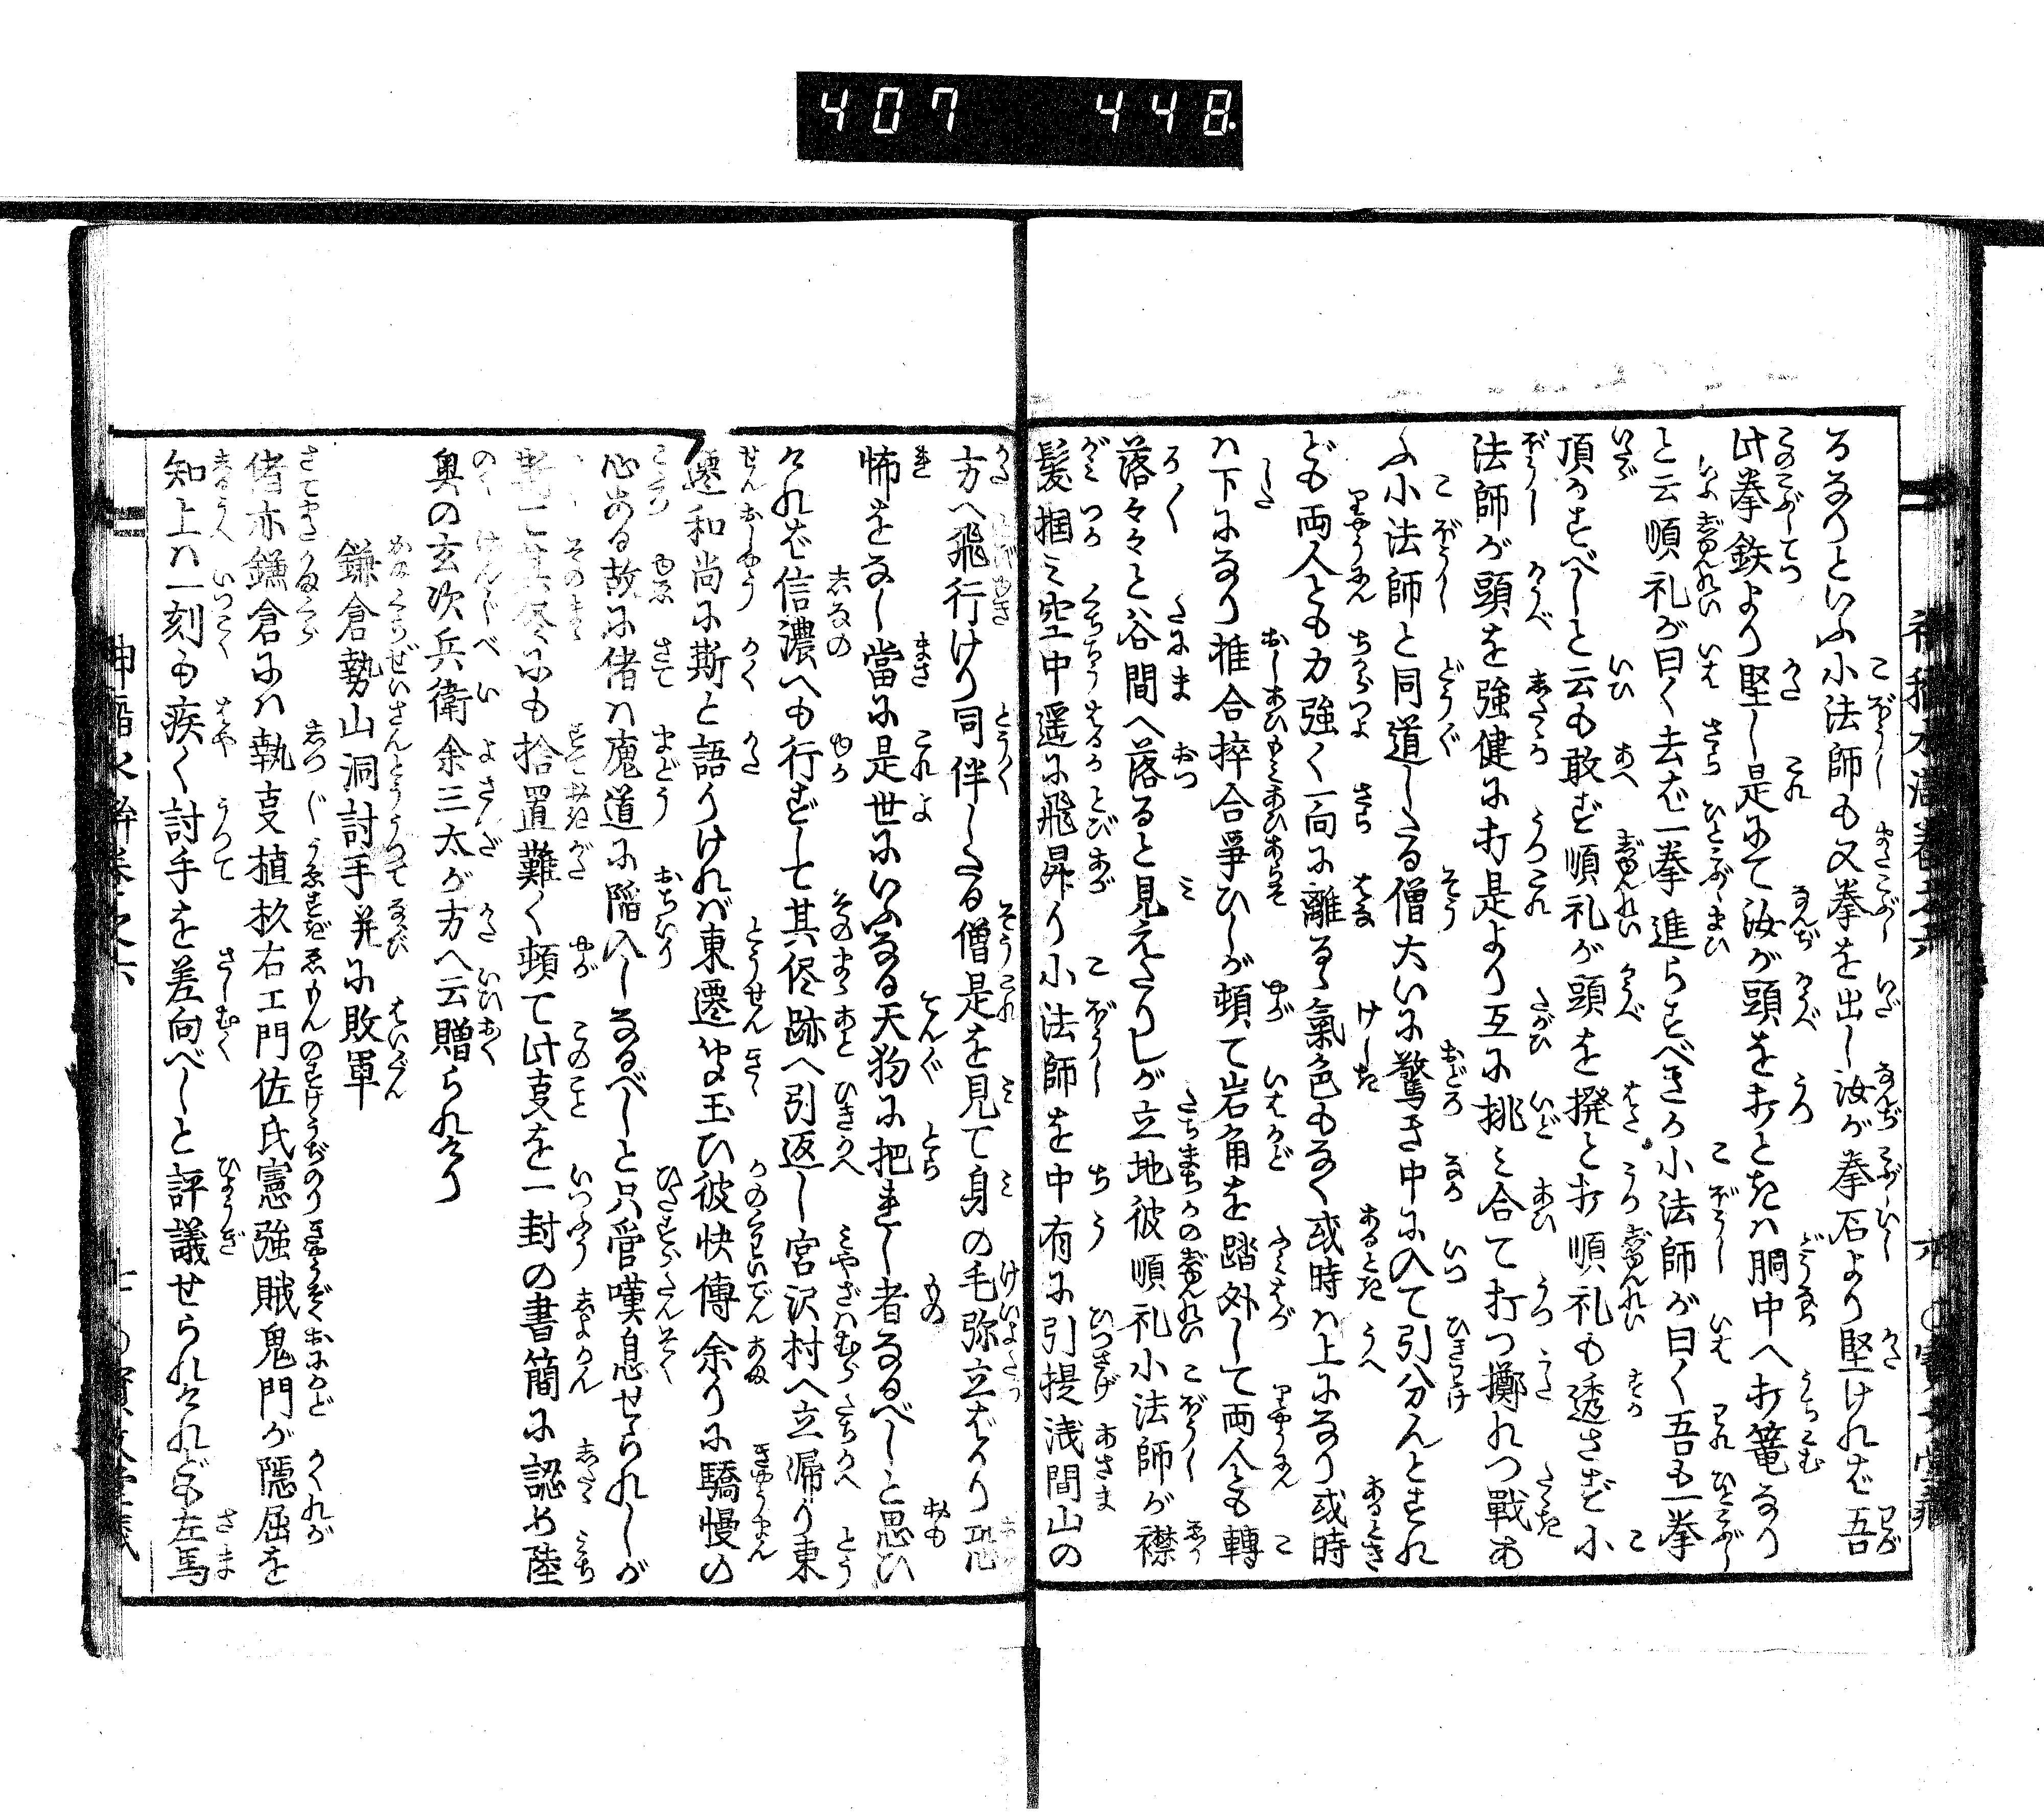 407 448
るなりといふ小法師も又拳を出し汝が拳石より堅ければ吾
此拳鉄より堅し是にて汝が頭を打ときは胴中へ打篭なり
と云順礼が曰く去ば一拳進らすべきか小法師が曰く吾も一拳
頂かすべしと云も敢ず順礼が頭を撥と打順礼も透さず小
法師が頭を強健に打是より互に挑み合て打つ擲れつ戦ゆ
ふ小法師と同道したる僧大いに驚き中に入て引分んとすれ
ども両人とも力強く一向に離るゝ氣色もなく或時は上になり或時
は下になり推合捽合爭ひしが頓て岩角を踏外して両人とも轉
落々々と谷間へ落ると見えたりしが立地彼順礼小法師が襟
髪掴み空中遥に飛昇り小法師を中有に引提浅間山の
方へ飛行けり同伴したる僧是を見て身の毛弥立ばかり恐
怖をなし當に是世にいふなる天狗に把れし者なるべしと思ひ
ければ信濃へも行ずして其侭跡へ引返し宮沢村へ立帰り東
遷和尚に斯と語りければ東遷聞玉ひ彼快傳余りに驕慢の
心ある故に偖は魔道に陥入しなるべしと只管嘆息せられしが
其侭にも拾置難く頓て此支を一封の書簡に認め陸
奥の玄次兵衛余三太が方へ云贈られけり
鎌倉勢山洞討手并に敗軍
偖亦鎌倉には執支植杉右エ門佐氏憲強賊鬼門が隠屈を
知上は一刻も疾く討手を差向べしと評議せられけれども左馬